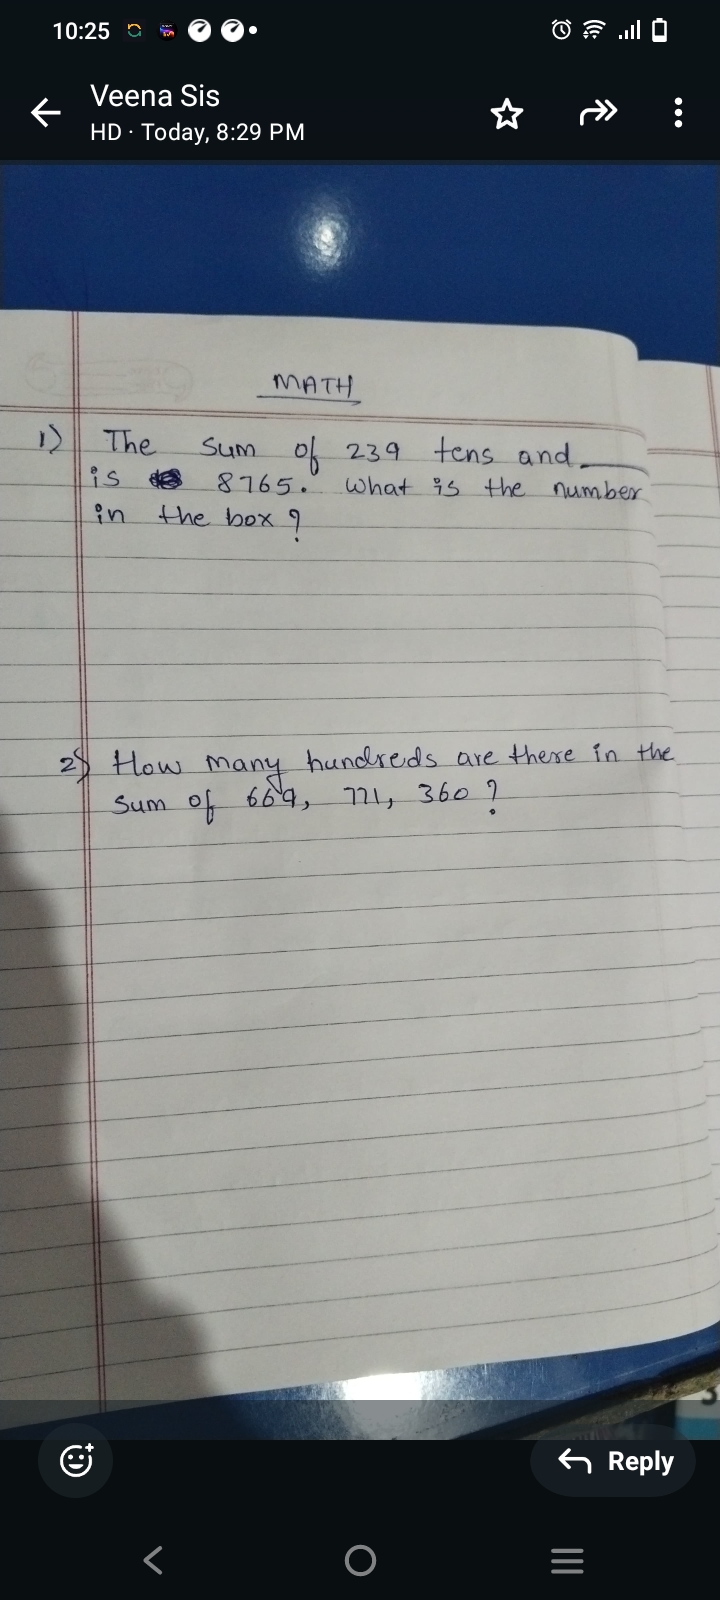 10:25
Veena Sis
HD · Today, 8:29 PM
MATH
1) The sum of 239 tens and ____
is 8765. What is the number
in the box?
2) How many hundreds are there in the
sum of 669, 771, 360?
Reply